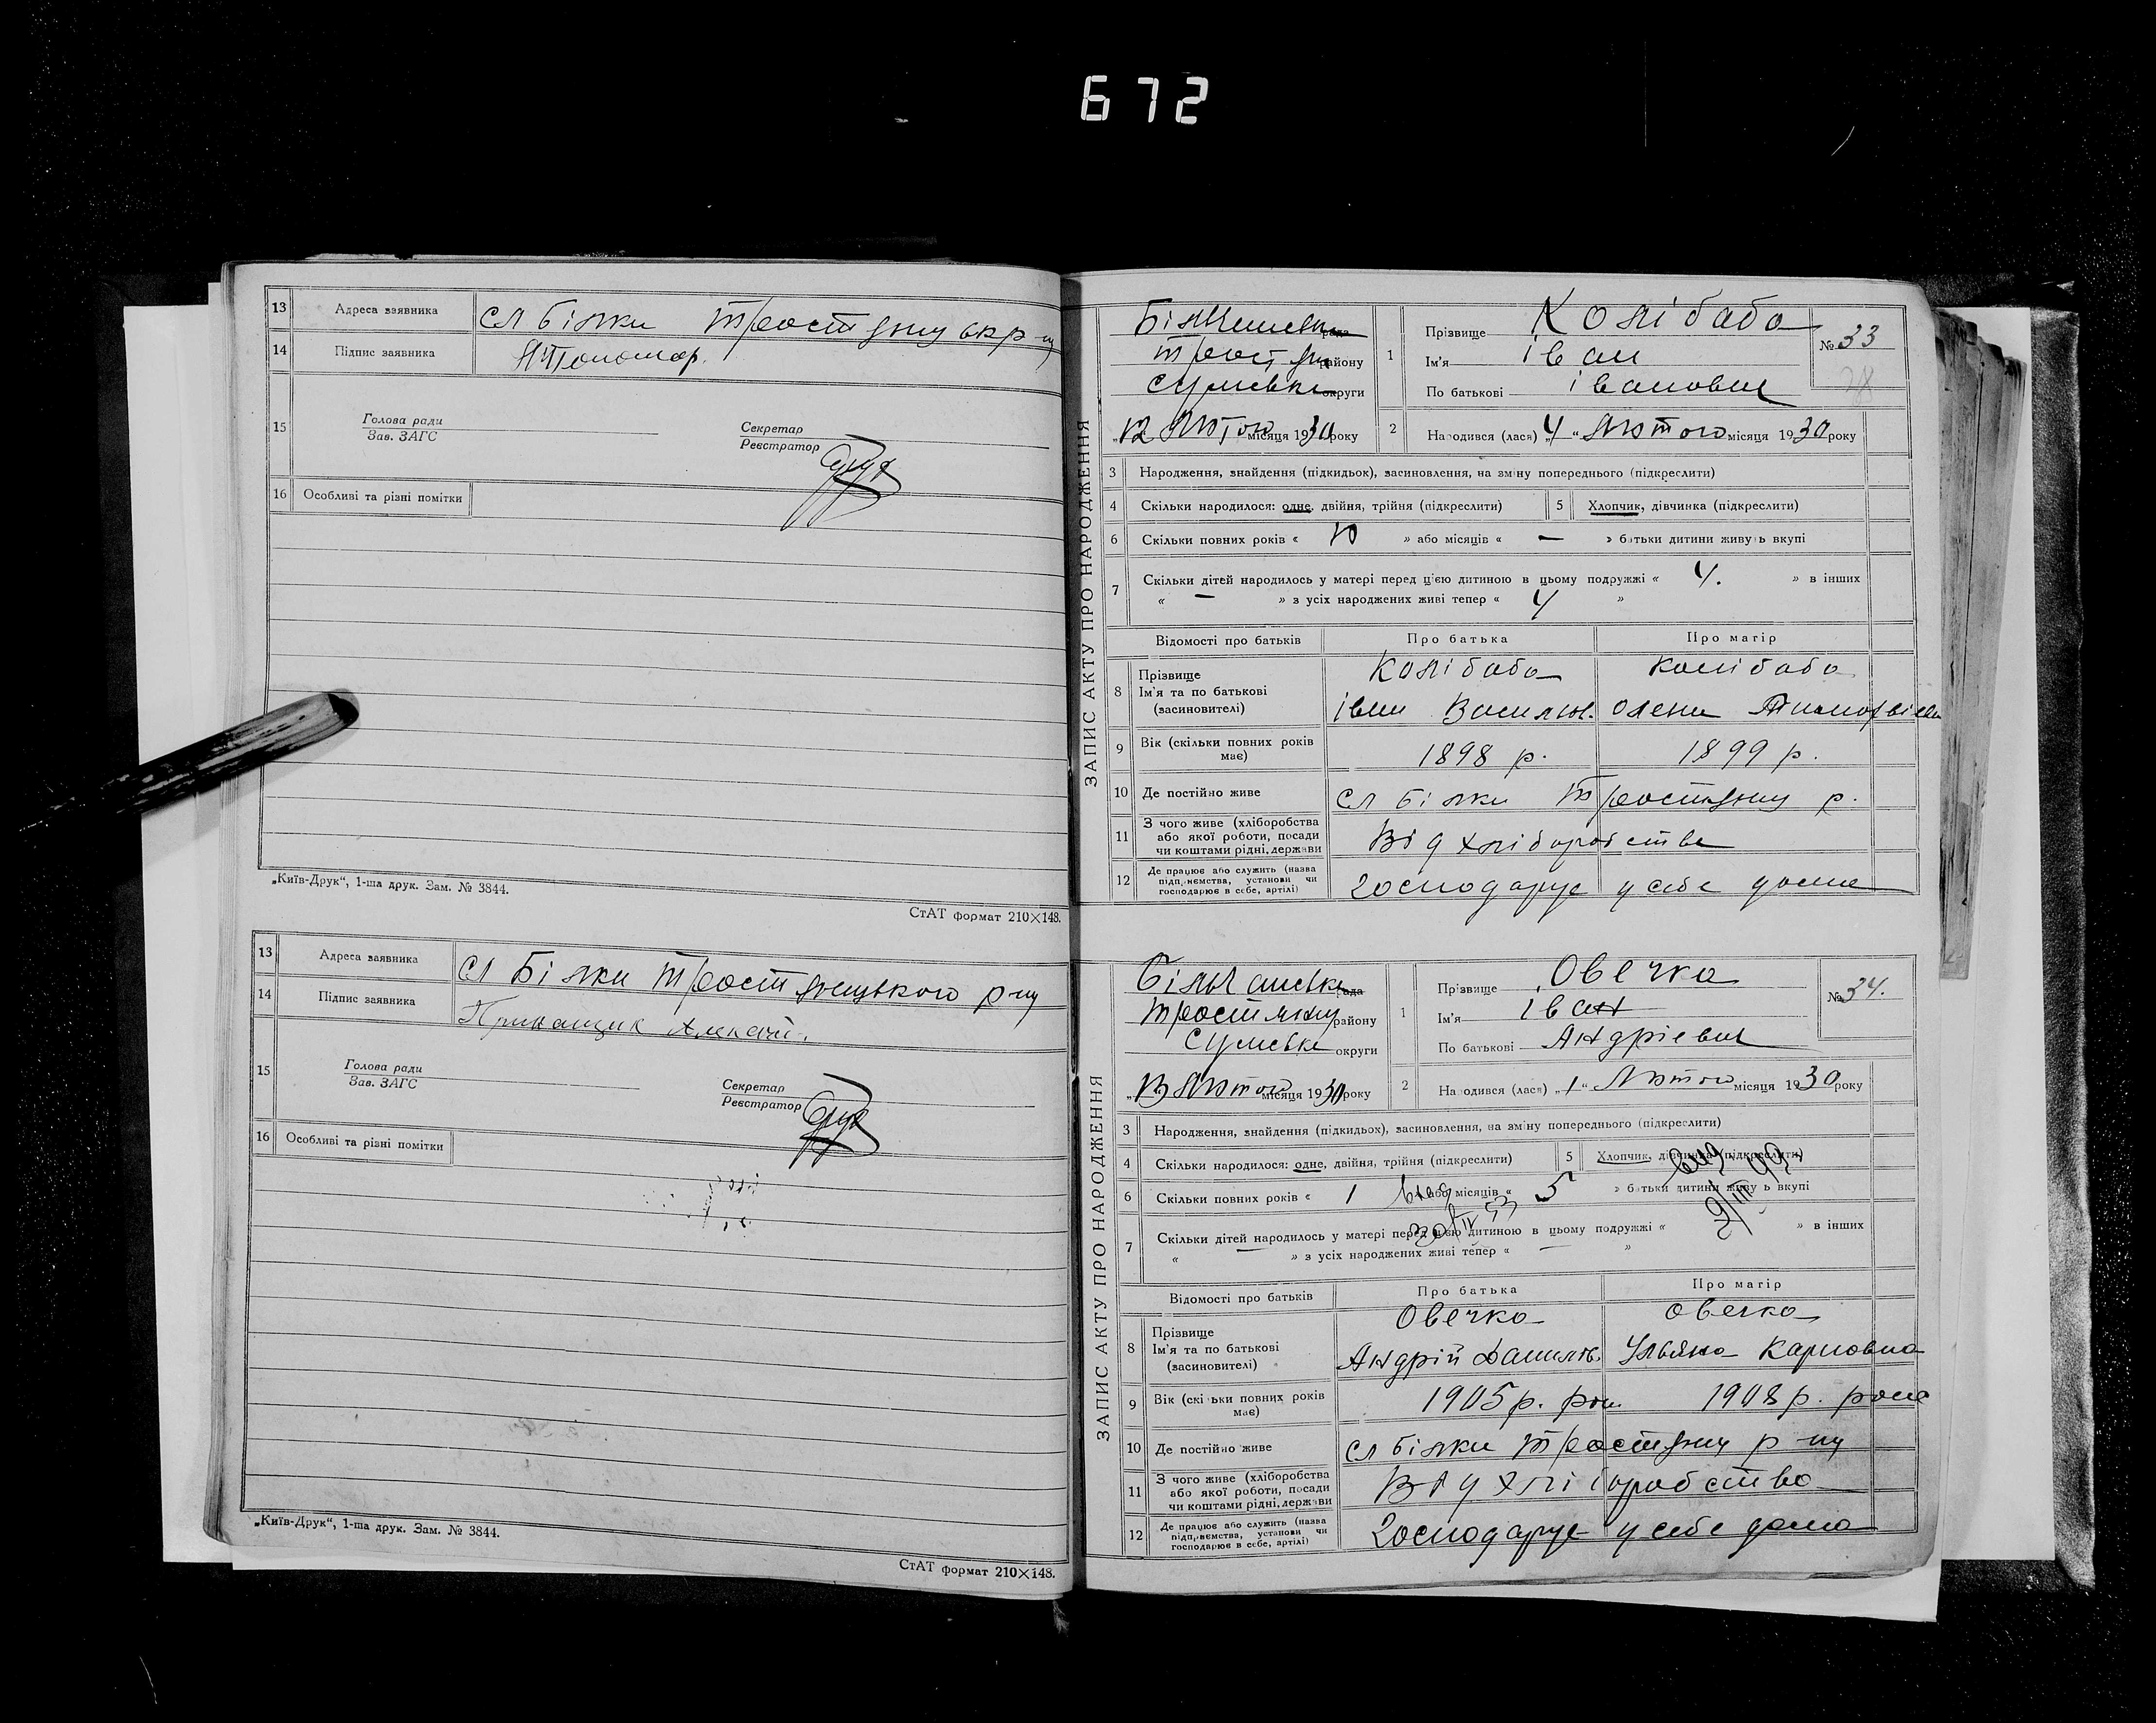 672
13 Адреса заявника сл Білки Тростянц окр-ну
14 Підпис заявника
15 Голова ради Секретар
Зав. ЗАГС Реєстратор
16 Особливі та різні помітки
„Київ-Друк“, 1-ша друк. Зам. № 3844.
СтАТ формат 210×148.
13 Адреса заявника сл Білки Тростянецького р-ну
14 Підпис заявника
15 Голова ради Секретар
Зав. ЗАГС Реєстратор
16 Особливі та різні помітки
„Київ-Друк“, 1-ша друк. Зам. № 3844.
СтАТ формат 210×148.
ЗАПИС АКТУ ПРО НАРОДЖЕННЯ
рада
району
Сумська округи
„12 Лютого місяця 1930 року
1 Прізвище Колібаба
Ім'я Іван
По батькові Іванович
№ 33
28
2 Народився (лася) „4“ Лютого місяця 1930 року
3 Народження, знайдення (підкидьок), засиновлення, на зміну попереднього (підкреслити)
4 Скільки народилося: одне, двійня, трійня (підкреслити) 5 Хлопчик, дівчинка (підкреслити)
6 Скільки повних років « 10 » або місяців « — » батьки дитини живуть вкупі
7 Скільки дітей народилось у матері перед цією дитиною в цьому подружжі « 4. » в інших
« — » з усіх народжених живі тепер « 4 »
Відомості про батьків Про батька Про матір
8 Прізвище Колібаба Колібаба
Ім'я та по батькові
(засиновителі) Іван Василів. Олена
9 Вік (скільки повних років має) 1898 р. 1899 р.
10 Де постійно живе сл Білки Тростянц р.
11 З чого живе (хліборобства або якої роботи, посади чи коштами рідні, держави Від хліборобства
12 Де працює або служить (назва підприємства, установи чи господарює в себе, артілі) Господарує у себе дома
ЗАПИС АКТУ ПРО НАРОДЖЕННЯ
Більчанська рада
Тростянец району
Сумська округи
„13 Лютого місяця 1930 року
1 Прізвище Овечка
Ім'я Іван
По батькові Андрієвич
№ 34.
2 Народився (лася) „1“ Лютого місяця 1930 року
3 Народження, знайдення (підкидьок), засиновлення, на зміну попереднього (підкреслити)
4 Скільки народилося: одне, двійня, трійня (підкреслити) 5 Хлопчик, дівчинка (підкреслити)
6 Скільки повних років « 1 » або місяців « 5 » батьки дитини живуть вкупі
7 Скільки дітей народилось у матері перед цією дитиною в цьому подружжі « » в інших
« — » з усіх народжених живі тепер « — »
Відомості про батьків Про батька Про матір
8 Прізвище Овечка Овечка
Ім'я та по батькові
(засиновителі) Андрій Данилів. Ульяна Карповна
9 Вік (скільки повних років має) 1905 р. рож. 1908 р. рож
10 Де постійно живе сл Білки Тростянц р-ну
11 З чого живе (хліборобства або якої роботи, посади чи коштами рідні, держави Від хліборобства
12 Де працює або служить (назва підприємства, установи чи господарює в себе, артілі) Господарує у себе дома